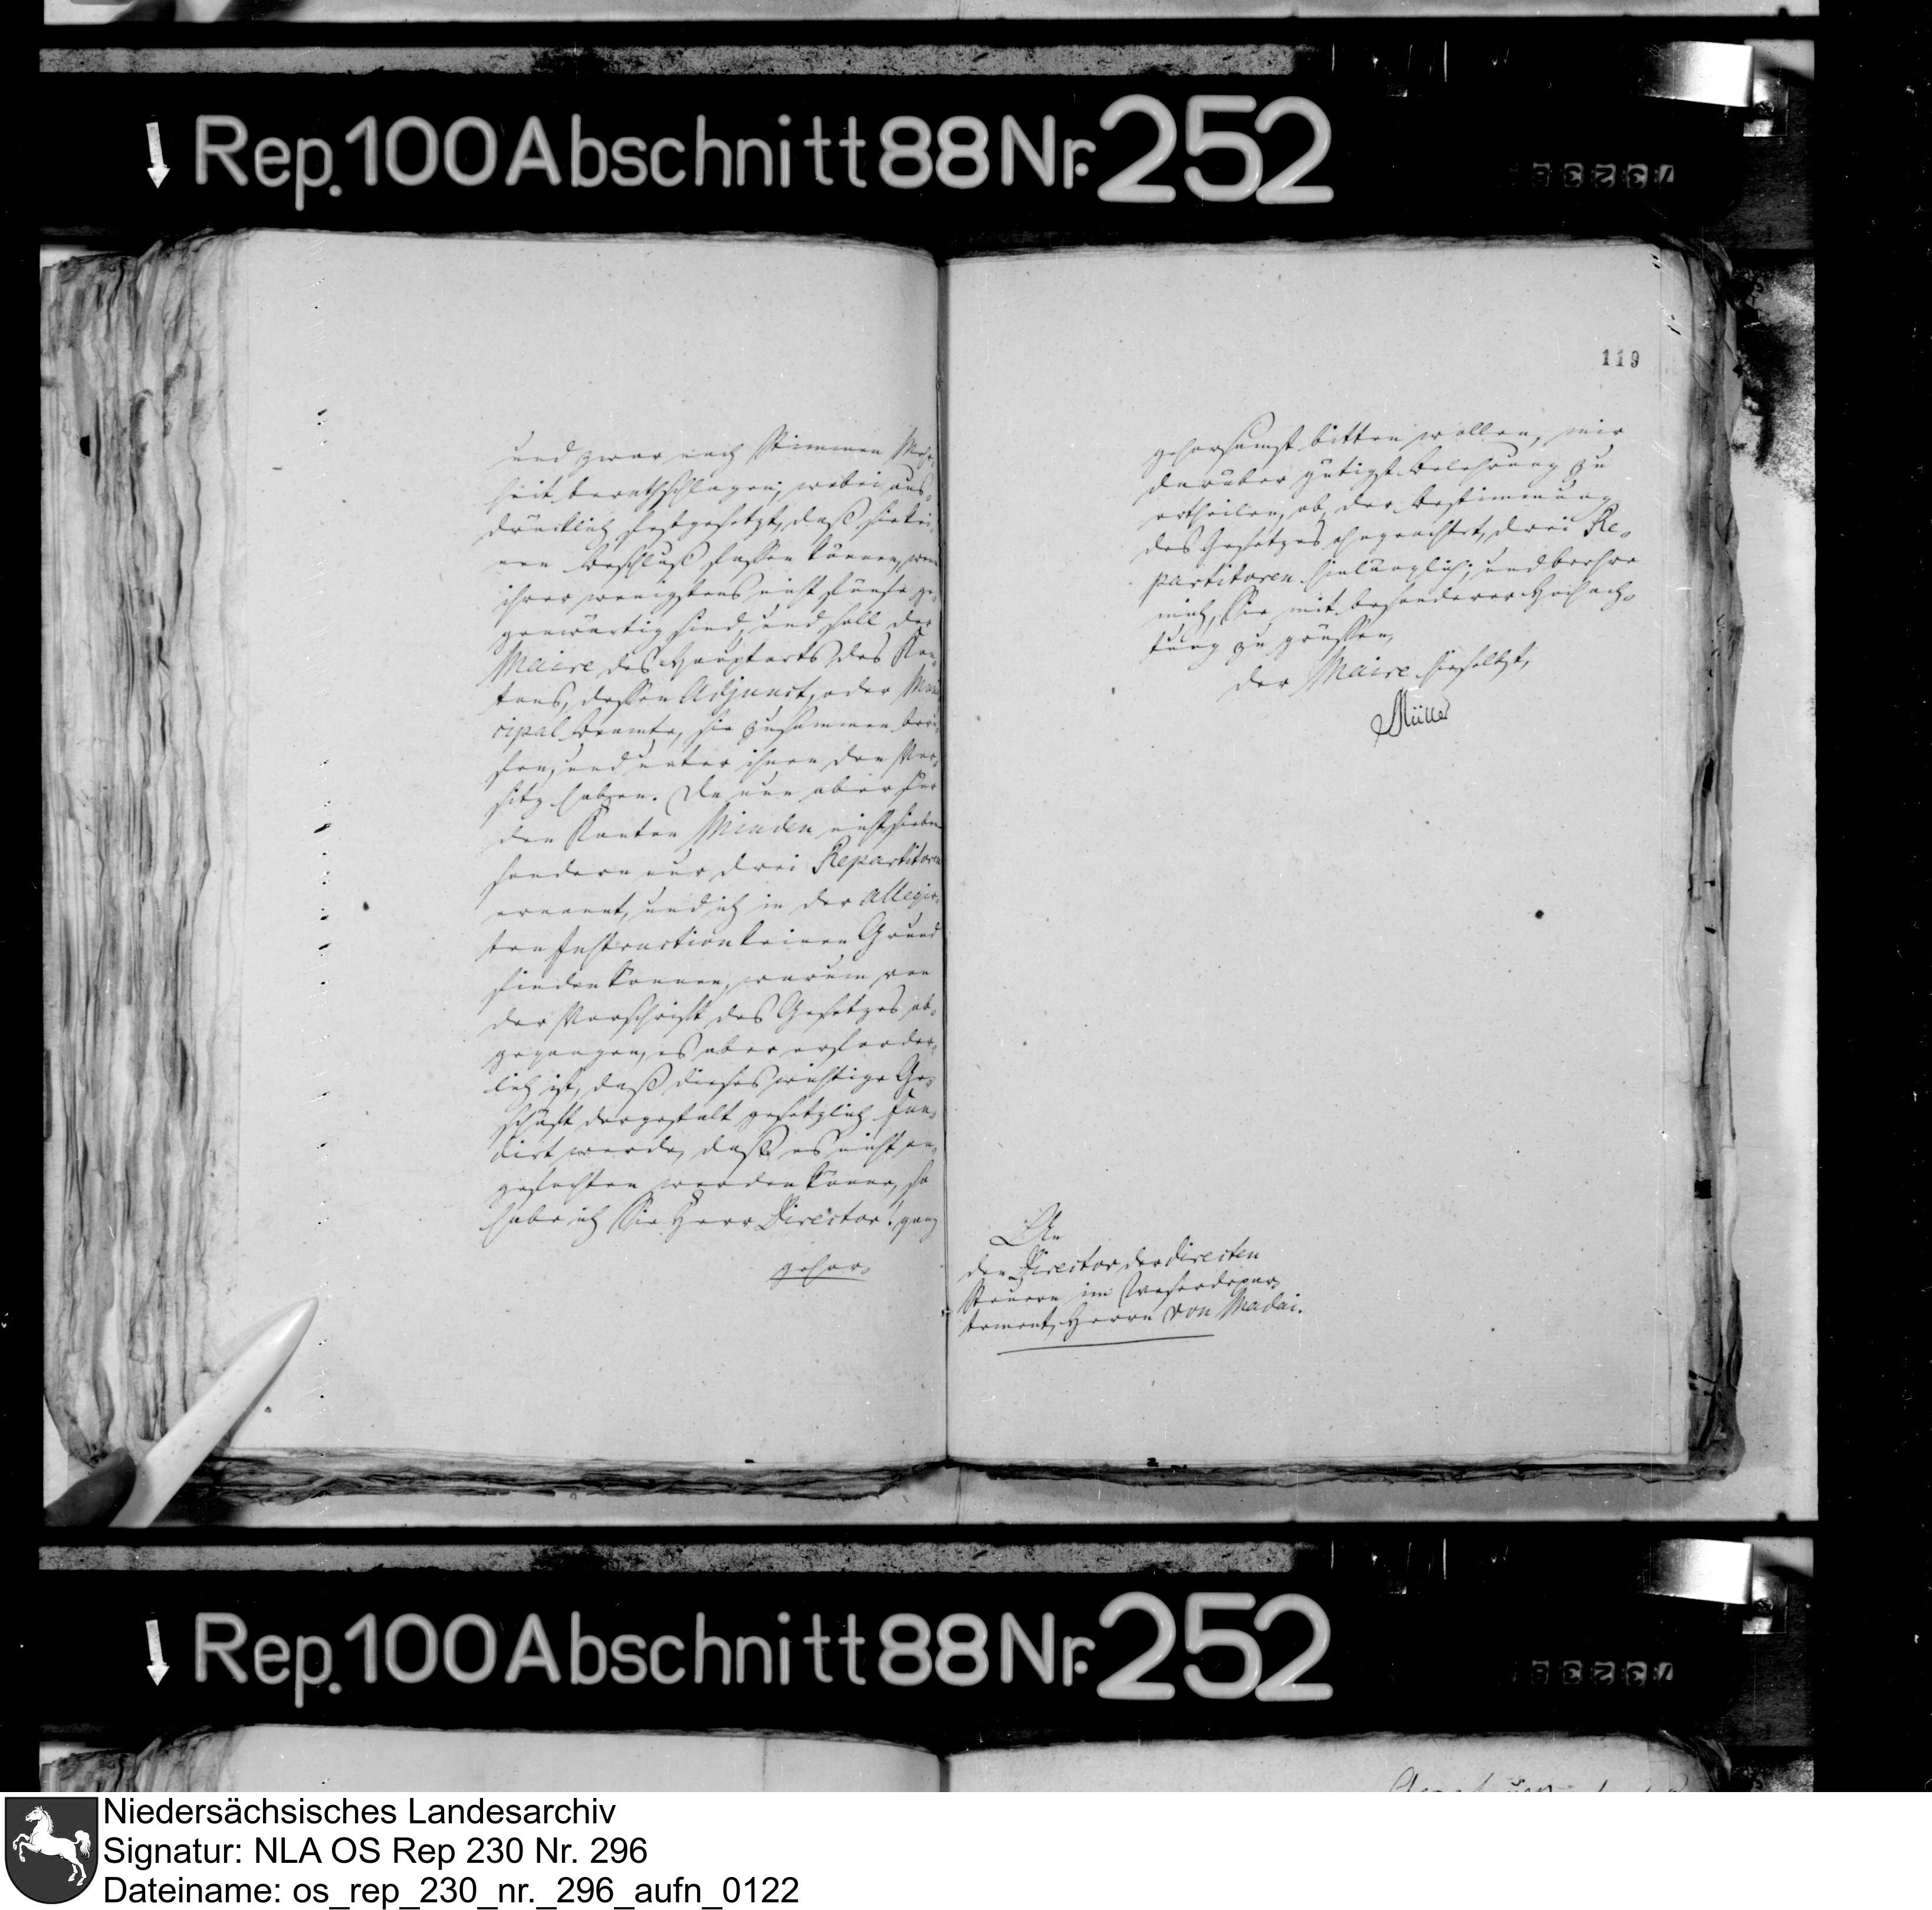 Rep. 100 Abschnitt 88 Nr. 252
und zwar nach Stimmen Mehr-
heit berathschlagen, wobei aus-
drücklich festgesetzt, daß sie kei-
nen Beschluß fassen können, wenn
ihrer wenigstens nicht fünfe ge-
genwärtig sind, und soll der
Maire des Hauptorts des Kan-
tons, dessen Adjunct, oder Muni-
cipal Beamte, sie zusammen beru-
fen, und unter ihnen den Vor-
sitz haben. Da nun aber für
den Kanton Minden nicht sieben
sondern nur drei Repartitoren
ernannt, und ich in der allegir-
ten Instruction keinen Grund
finden können, warum von
der Vorschrift des Gesetzes ab-
gegangen, es aber erforder-
lich ist, daß dieses wichtige Ge-
schäft dergestalt gesetzlich fun-
dirt werde, daß es nicht an-
gefochten werden könne, so
habe ich Sie Herr Director! ganz
gehor-
119
gehorsamst bitten wollen, mir
darüber gütigst Belehrung zu
ertheilen, ob, der Bestimmung
des Gesetzes ohngeachtet, drei Re-
partitoren hinlänglich; und beehre
mich, Sie mit besonderer Hochach-
tung zu grüssen,
der Maire hieselbst,
Müller
An
den Director der directen
Steuern im Weserdepar-
tement, Herrn von Madai.
Rep. 100 Abschnitt 88 Nr. 252
Niedersächsisches Landesarchiv
Signatur: NLA OS Rep 230 Nr. 296
Dateiname: os_rep_230_nr._296_aufn_0122